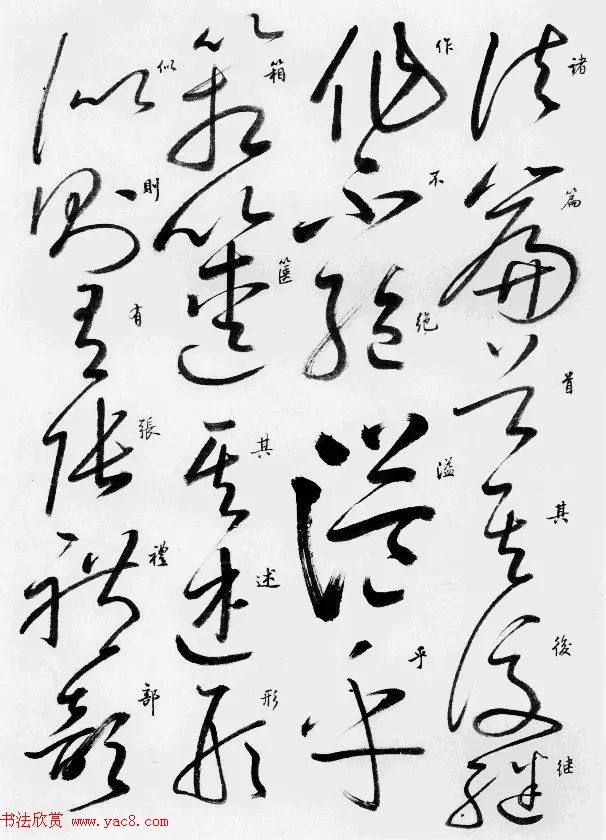 诸篇首其後继
作不绝溢乎
箱箧其述形
似則有張禮部
書法欣赏 www.yac8.com